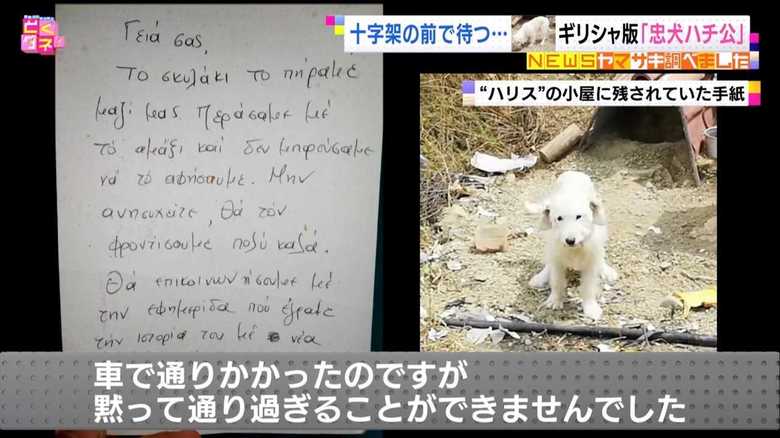 とくダネ!
十字架の前で待つ… ギリシャ版「忠犬ハチ公」
NEWSヤマサキ調べました
“ハリス”の小屋に残されていた手紙
Γειά σας,
Το σκυλάκι το πήραμε
μαζί μας. Περάσαμε μέ
τό αμάξι καί δεν μπορούσαμε
νά τό αφήσουμε. Μην
ανησυχείτε, θά τόν
φροντίσουμε πολύ καλά.
Θά επικοινωνήσουμε μέ
την εφημερίδα πού έγραψε
τήν ιστορία του μέ νέα
車で通りかかったのですが
黙って通り過ぎることができませんでした